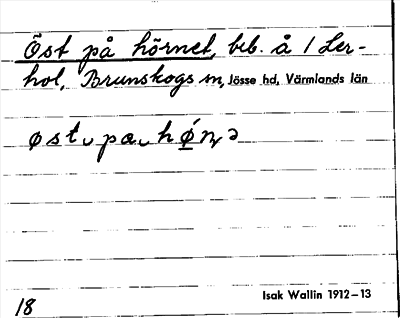 Öst på hörnet, beb. å 1 Ler-
hol, Brunskogs sn, Jösse hd, Värmlands län
øst ‿ pa ‿ hǿṇə
Isak Wallin 1912–13
18